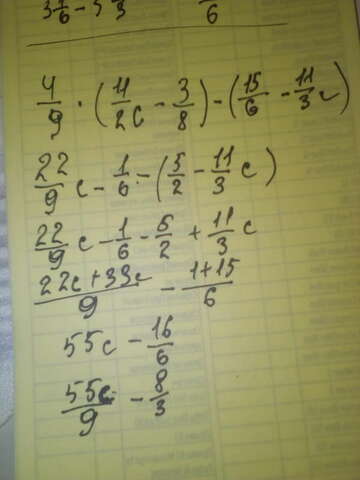 3 1/6 - 3 /3 /6
4/9 · (11/2 c - 3/8) - (15/6 - 11/3 c)
22/9 c - 1/6 - (5/2 - 11/3 c)
22/9 c - 1/6 - 5/2 + 11/3 c
22c+33c/9 - 1+15/6
55c - 16/6
55c/9 - 8/3